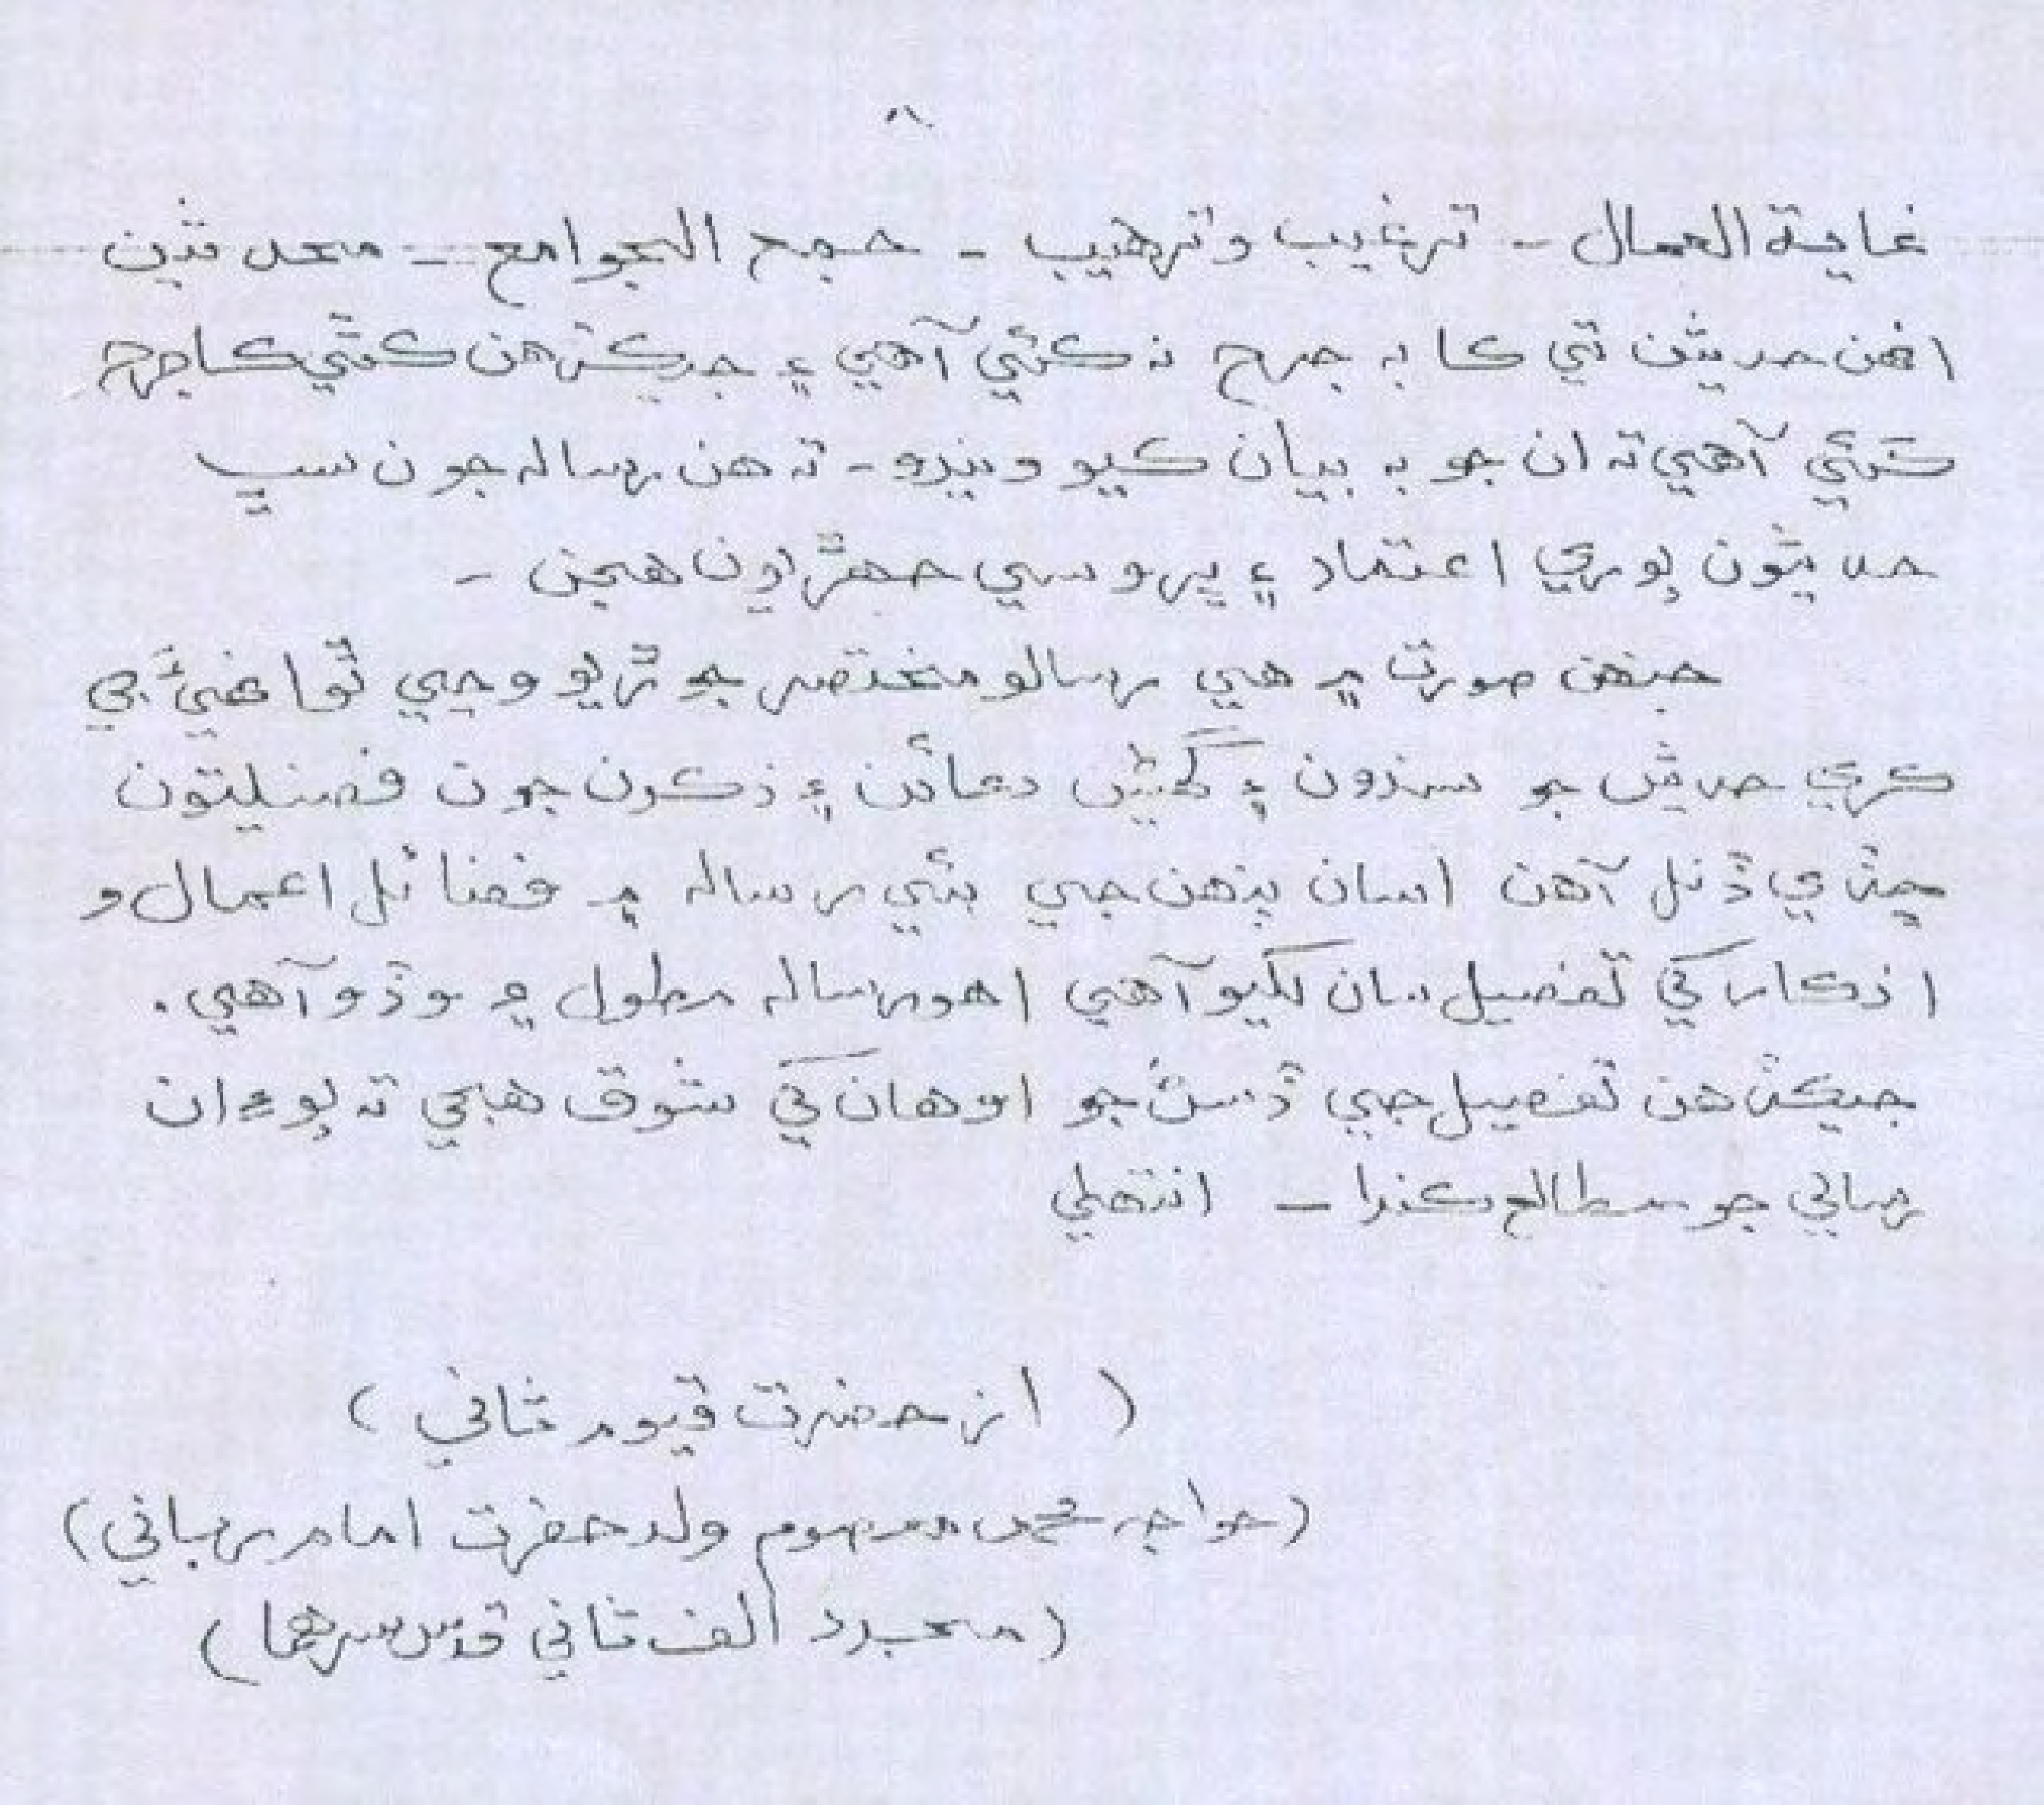 ۸
غاية العمال - ترغيب وترهيب - جمع الجوامع - محدثين
انهن حديثن تي ڪا به جرح نه ڪئي آهي ۽ جيڪڏهن ڪٿي ڪا جرح
ڪئي آهي ته ان جو به بيان ڪيو ويندو - ته هن رسالہ جون سڀ
حديثون پوري اعتماد ۽ ڀروسي جهڙيون هجن -
جنهن صورت ۾ هي رسالو مختصر جوڙيو وڃي ٿو انهيءَ جي
ڪري حديثن جو سندون ۽ گهڻين دعائن ۽ ذڪرن جون فضيلتون
ڇڏي ڏنل آهن اسان پنهن جي ٻئي رسالہ ۾ فضائل اعمال و
اذڪار کي تفصيل سان لکيو آهي اهو رسالہ مطول ۽ وڏو آهي.
جيڪڏهن تفصيل جي ڏسڻ جو اوهان کي شوق هجي ته پوءِ ان
رسالي جو مطالع ڪندا - انتهيٰ
( از حضرت قيوم ثاني )
(خواجہ محمد معصوم ولد حضرت امام رباني)
(مجدد الف ثاني قدس سرهما)